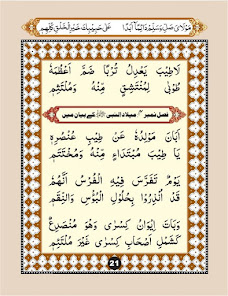 مَوْلَايَ صَلِّ وَسَلِّمْ دَائِمًا أَبَدًا عَلَى حَبِيبِكَ خَيْرِ الْخَلْقِ كُلِّهِمِ
لَاطِيبَ يَعْدِلُ تُرْبًا ضَمَّ أَعْظُمَهُ
طُوبٰى لِمُنْتَشِقٍ مِنْهُ وَمُلْتَثِمِ
میلاد النبی ﷺ کے بیان میں
أَبَانَ مَوْلِدُهٗ عَنْ طِيبِ عُنْصُرِهٖ
يَا طِيبَ مُبْتَدَاءٍ مِنْهُ وَمُخْتَتَمِ
يَوْمٌ تَفَرَّسَ فِيهِ الْفُرْسُ أَنَّهُمْ
قَدْ اُنْذِرُوا بِحُلُولِ الْبُؤْسِ وَالنِّقَمِ
وَبَاتَ إِيْوَانُ كِسْرٰى وَهُوَ مُنْصَدِعٌ
كَشَمْلِ أَصْحَابِ كِسْرٰى غَيْرَ مُلْتَئِمِ
21